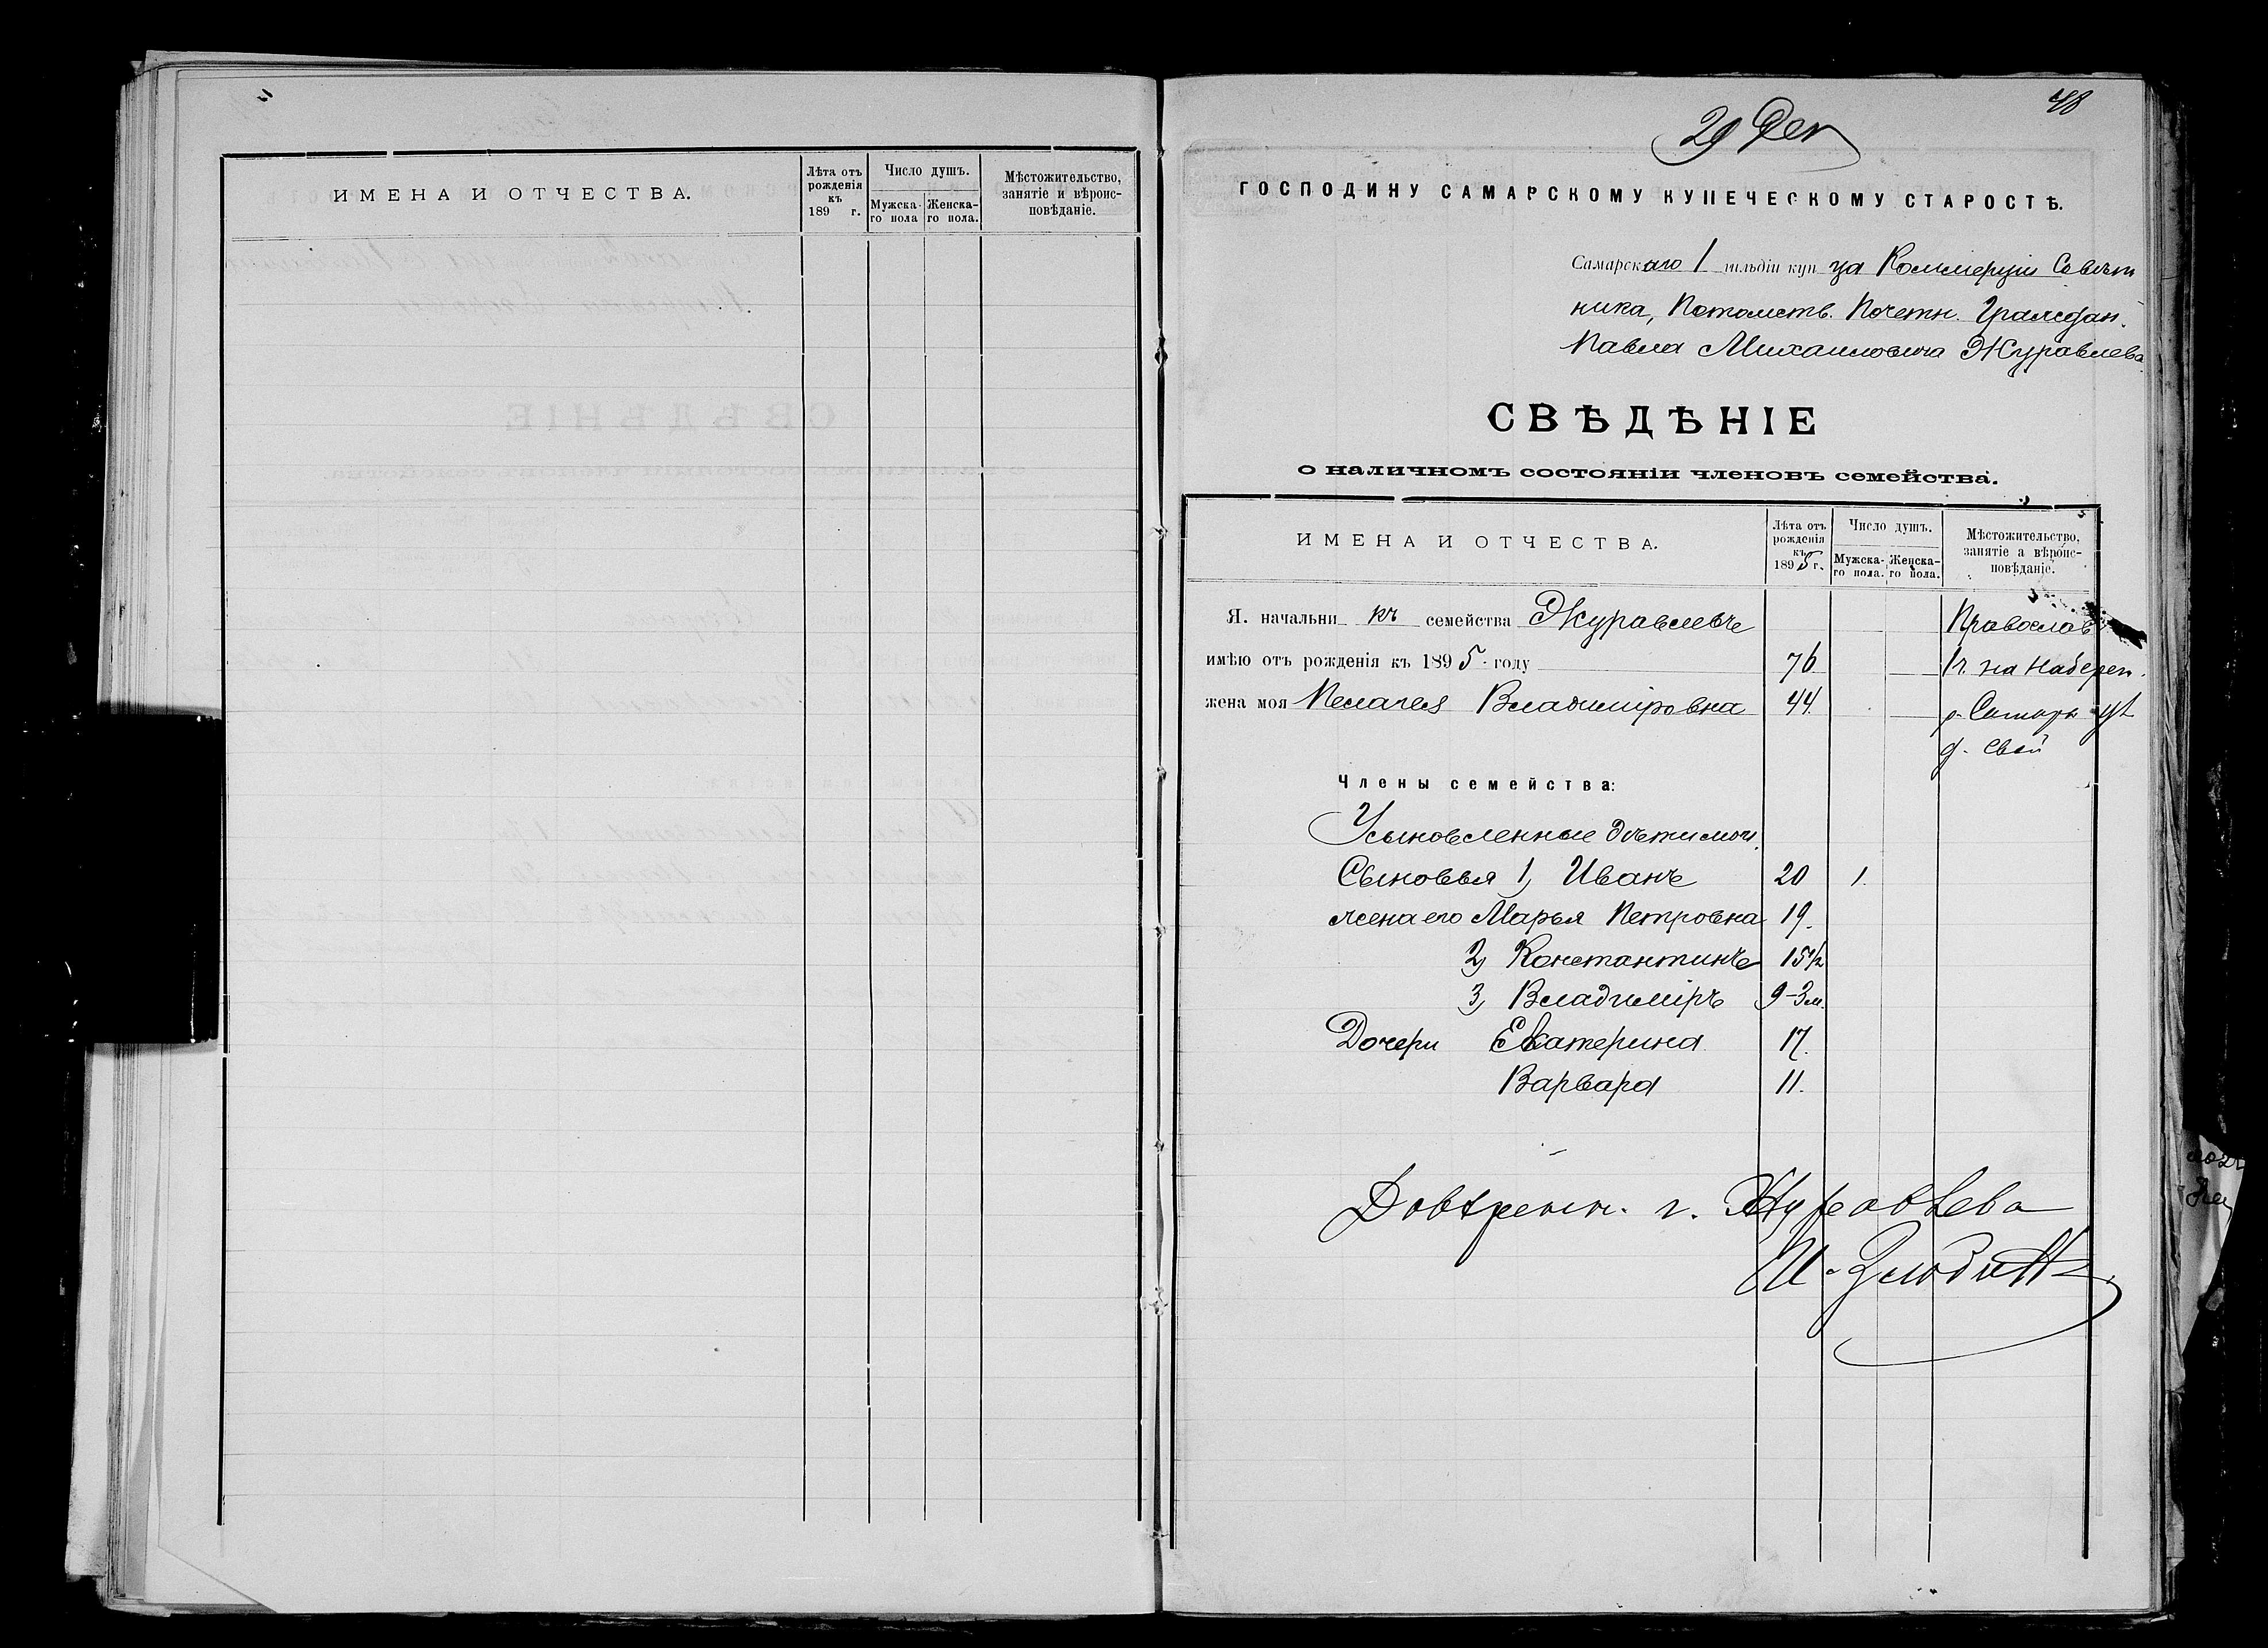 ИМЕНА И ОТЧЕСТВА.
Лѣта отъ рожденія къ 189 г.
Число душъ.
Мужска-го пола
Женска-го пола.
Мѣстожительство, занятіе и вѣроис-повѣданіе.
48
29 Дек
ГОСПОДИНУ САМАРСКОМУ КУПЕЧЕСКОМУ СТАРОСТѢ.
Самарскаго 1 гильдіи купца Коммерціи Совѣт
ника, Потомств. Почетн. Граждан.
Павла Михаиловича Журавлева
СВѢДѢНІЕ
о наличномъ состояніи членовъ семейства.
ИМЕНА И ОТЧЕСТВА.
Лѣта отъ рожденія къ 1895 г.
Число душъ.
Мужска-го пола.
Женска-го пола.
Мѣстожительство, занятіе а вѣроис-повѣданіе.
Я. начальникъ семейства Журавлевъ Православ
имѣю отъ рожденія къ 1895 году 76 1 ч. на Набереж.
жена моя Пелагея Владиміровна 44. р. Самары
д. свой
Члены семейства:
Усыновленные дѣти мои
Сыновья 1, Иванъ 20 1.
жена его Марья Петровна 19.
2, Константинъ 15 1/2
3, Владиміръ 9-3 м.
Дочери Екатерина 17.
Варвара 11.
Довѣренн. г. Журавлева